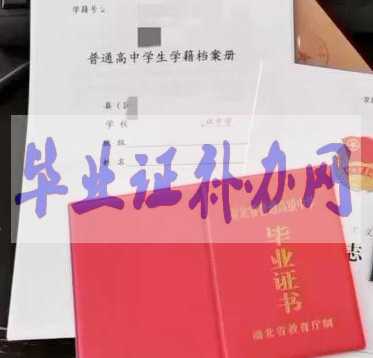 学籍号
普通高中学生学籍档案册
县(
学校
班级
姓名
毕业证补办网
毕业证书
湖北省教育厅制
志